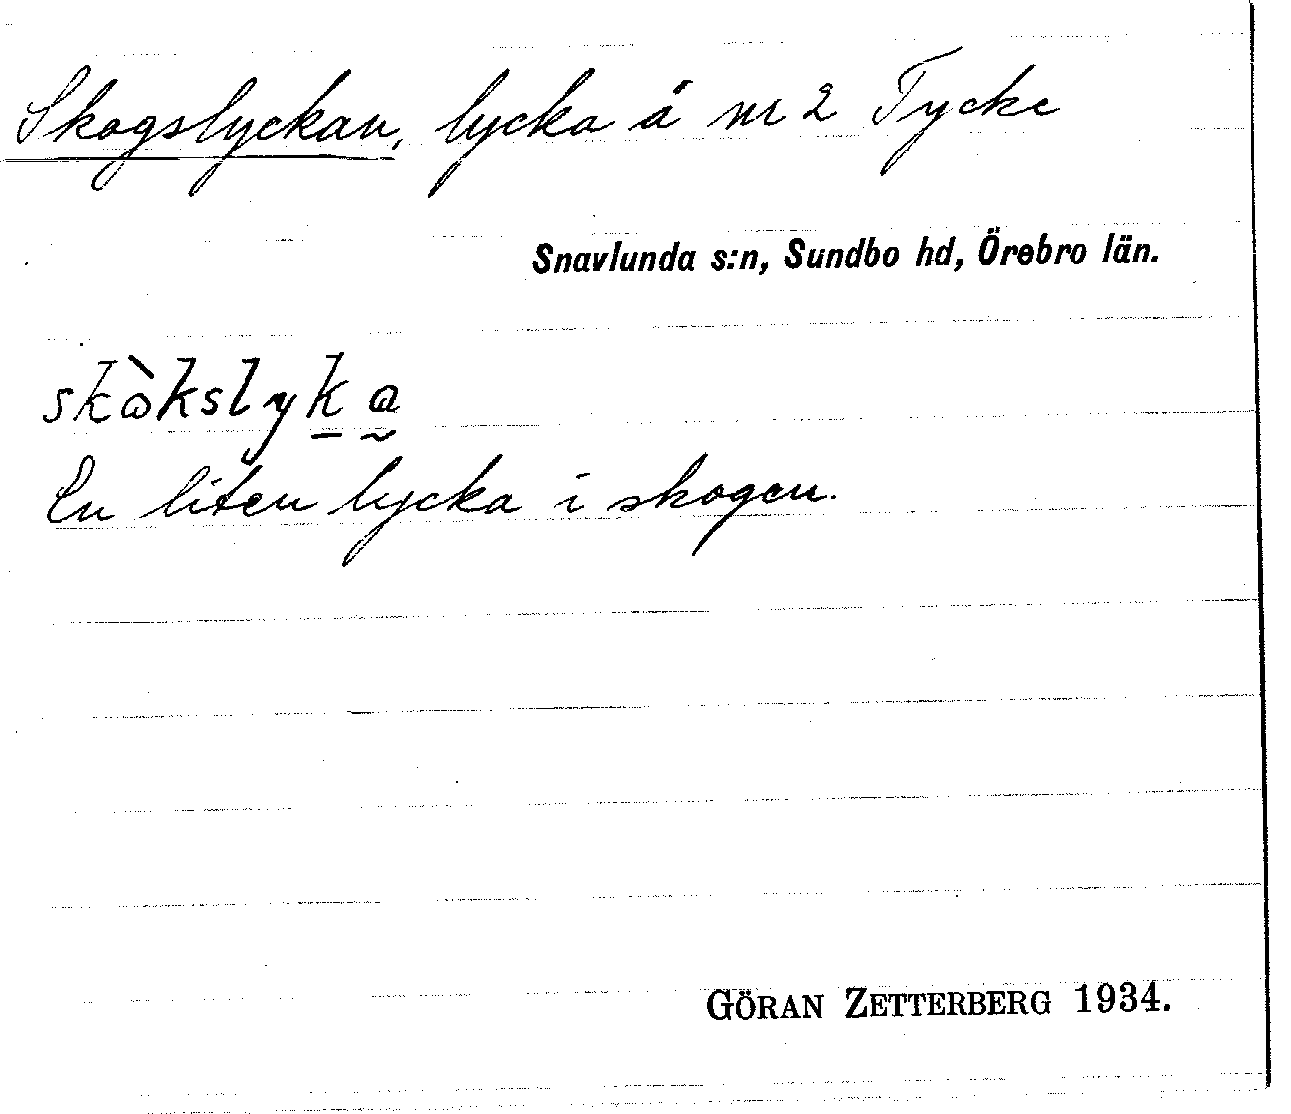 Skogslyckan, lycka å nr 2 Tycke
Snavlunda s:n, Sundbo hd, Örebro län.
skὼkslyk̠a̰
En liten lycka i skogen.
GÖRAN ZETTERBERG 1934.